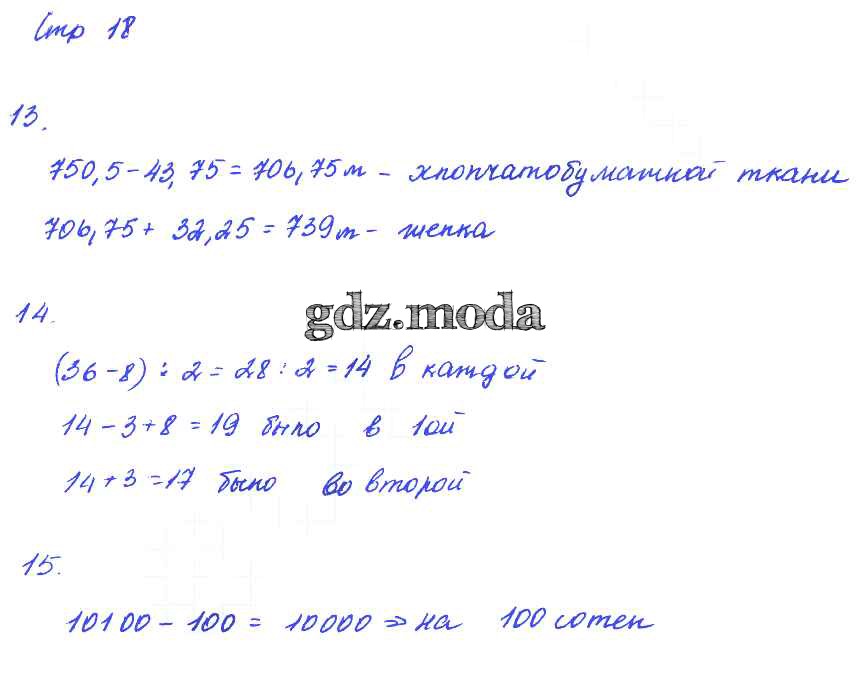 Стр 18
13.
750,5 - 43,75 = 706,75 м - хлопчатобумажной ткани
706,75 + 32,25 = 739 м - шелка
14.
gdz.moda
(36 - 8) : 2 = 28 : 2 = 14 в каждой
14 - 3 + 8 = 19 было в 1ой
14 + 3 = 17 было во второй
15.
10100 - 100 = 10000 => на 100 сотен